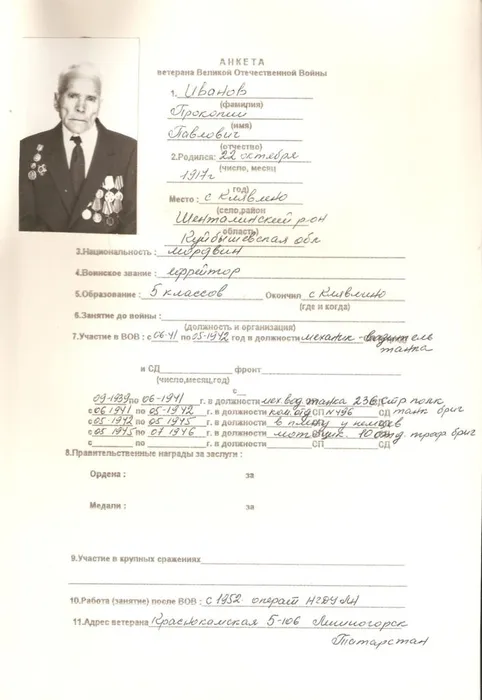 АНКЕТА
ветерана Великой Отечественной Войны
1. Иванов
(фамилия)
Прокопий
(имя)
Павлович
(отчество)
2.Родился: 22 октября
(число, месяц
1917г
год)
Место : с Клявлино
(село,район
Шенталинский р он
область)
Куйбышевская обл
3.Национальность : мордвин
4.Воинское звание : ефрейтор
5.Образование : 5 классов Окончил с Клявлино
(где и когда)
6.Занятие до войны :
(должность и организация)
7.Участие в ВОВ : с 06-41 по 05-1942 год в должности механик-водитель
танка
и СД фронт
(число,месяц,год)
с
09-1939 по 06-1941 г. в должности мех вод танка 236 стр полк
с 06 1941 по 05-1942 г. в должности ком. отд СП N 496 СД танк бриг
с 05 1942 по 05-1945 г. в должности в плену у немцев
с 05 1945 по 07 1946 г. в должности мотоцик. 10 отд. бриг
с по г. в должности СП СД
8.Правительственные награды за заслуги :
Ордена : за
Медали : за
9.Участие в крупных сражениях
10.Работа (занятие) после ВОВ : С 1952. операт НГДУ ЛН
11.Адрес ветерана Краснокамская 5-106 Лениногорск
Татарстан